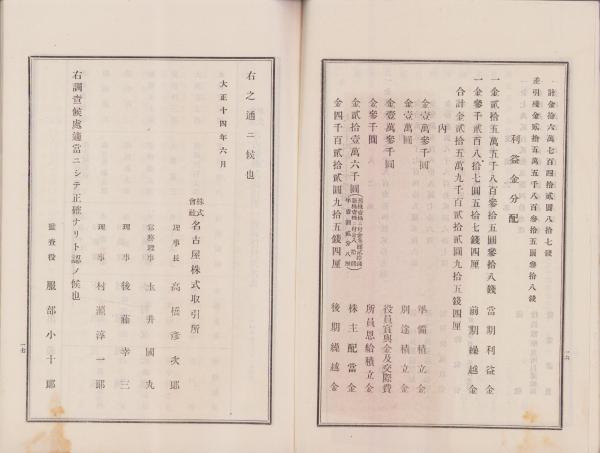 計金拾六萬七百四拾貳圓八拾七錢
差引殘金貳拾五萬五千八百參拾五圓參拾八錢
利益金分配
一金貳拾五萬五千八百參拾五圓參拾八錢 當期利益金
一金參千貳百八拾七圓五拾七錢四厘 前期繰越金
合計金貳拾五萬九千百貳拾貳圓九拾五錢四厘
內
金壹萬參千圓 準備積立金
金壹萬圓 別途積立金
金壹萬參千圓 役員賞與金及交際費
金參千圓 所員恩給積立金
金貳拾壹萬六千圓 株主配當金
金四千百貳拾貳圓九拾五錢四厘 後期繰越金
一六
右之通ニ候也
大正十四年六月
株式會社 名古屋株式取引所
理事長 高橋彥次郞
常務理事 土井國丸
理事 後藤幸三
理事 村瀨淳一郞
右調查候處適當ニシテ正確ナリト認メ候也
監查役 服部小十郞
一七